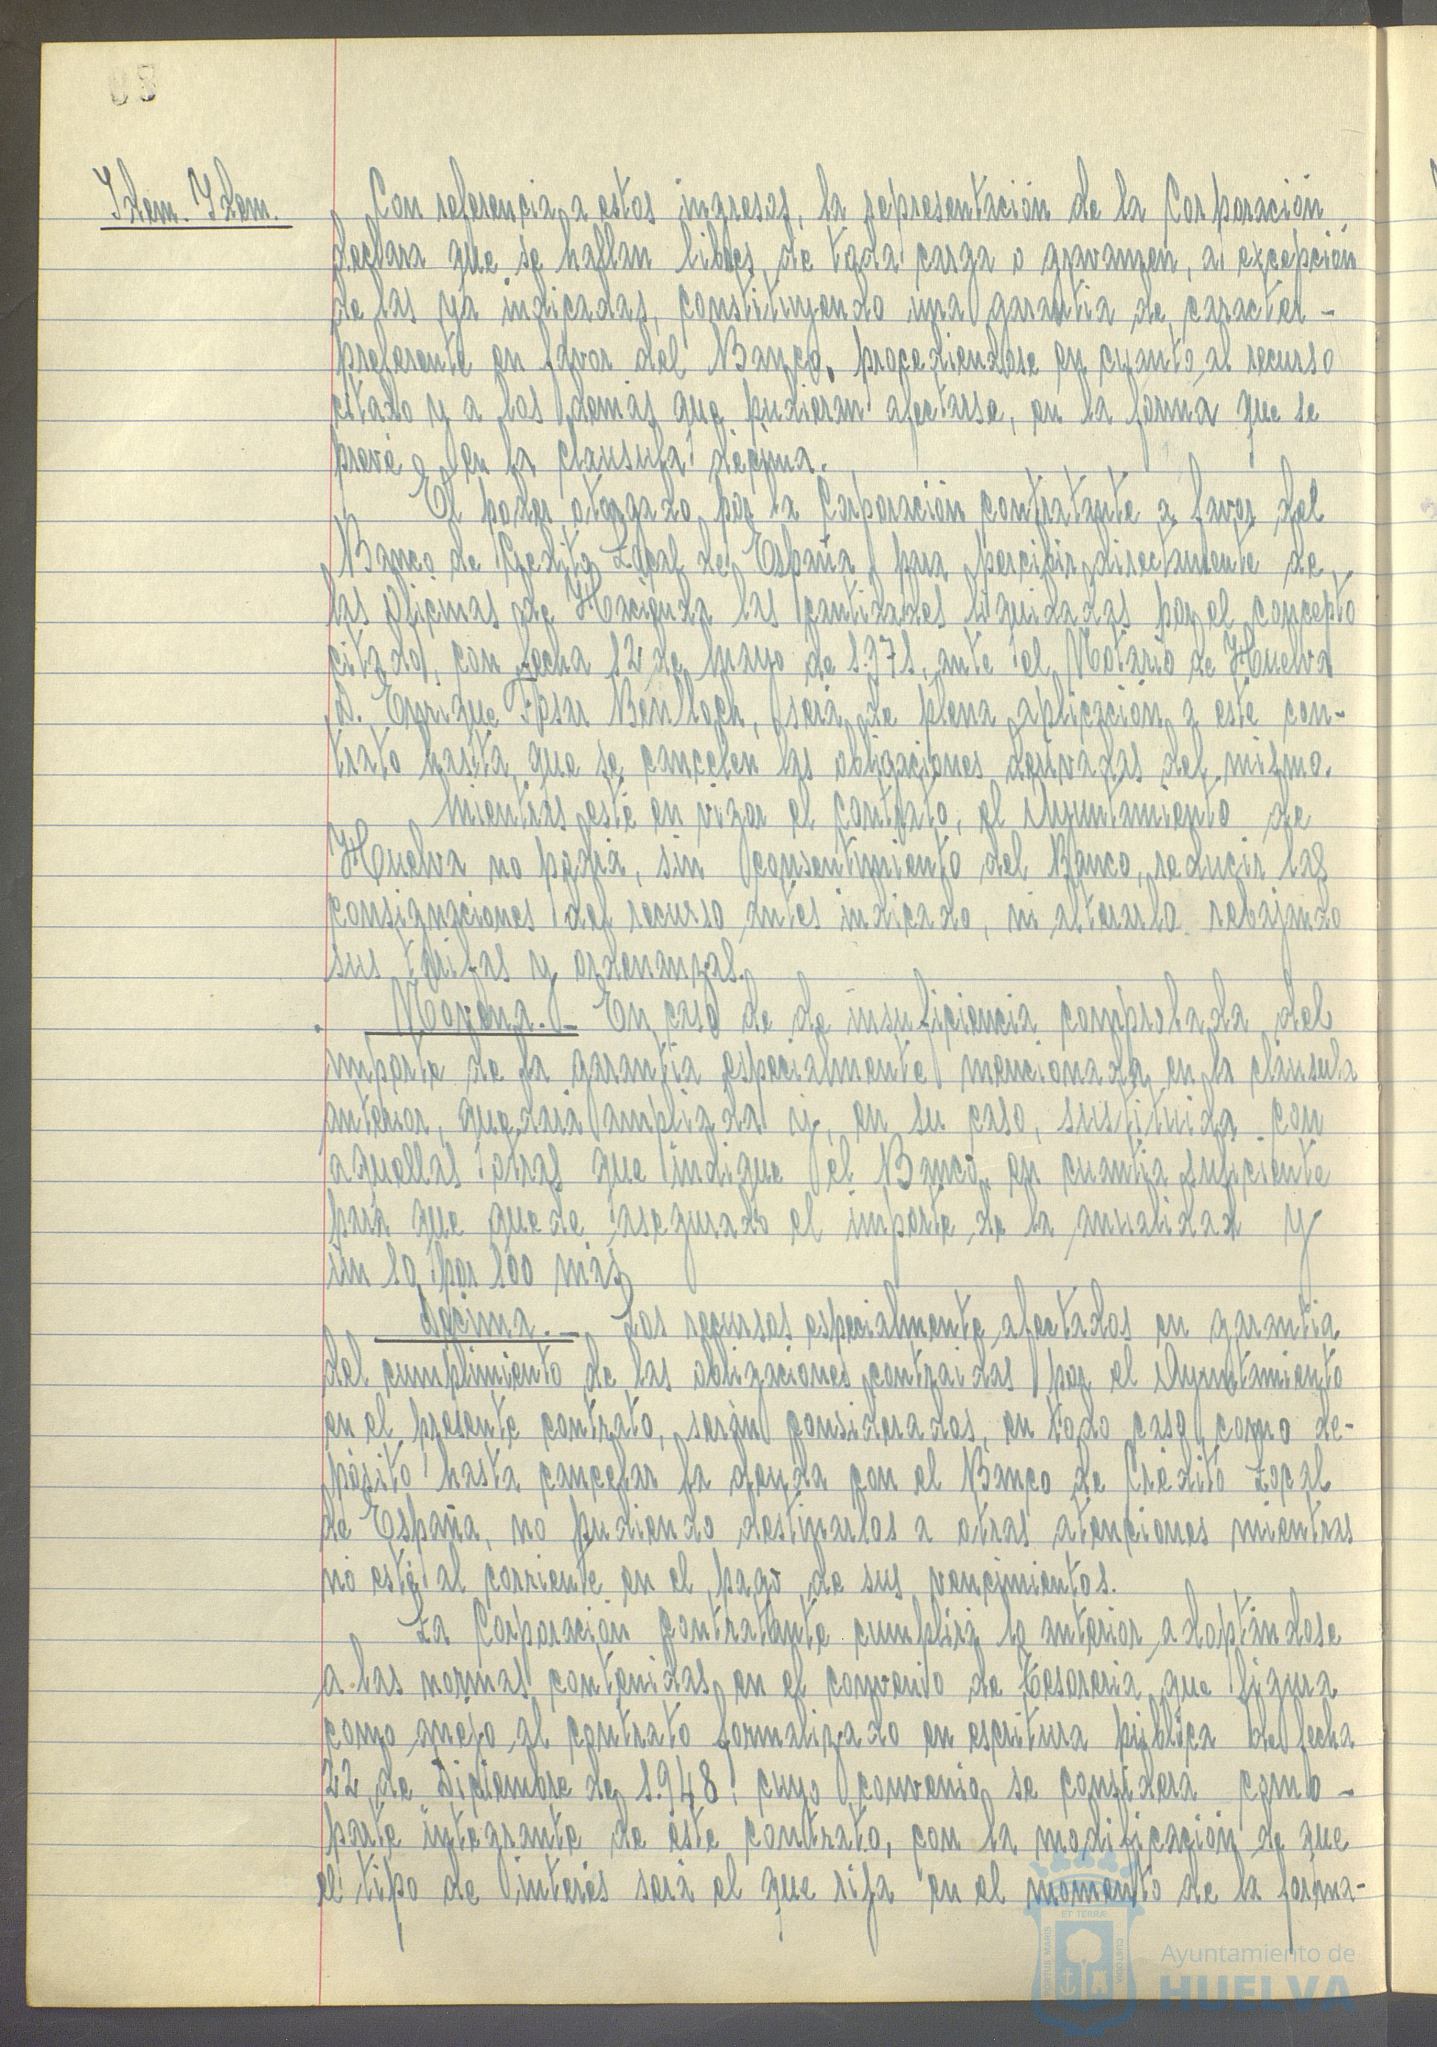 Idem. Idem.
Con referencia a estos ingresos, la representación de la Corporación
declara que se hallan libres de toda carga o gravamen, a excepción
de las ya indicadas, constituyendo una garantia de caracter -
preferente en favor del Banco, procediendose en cuanto al recurso
citado y a los demás que pudieran afectarse, en la forma que se
prevé en la clausula décima.
El poder otorgado por la Corporación contratante a favor del
Banco de Credito Local de España para percibir directamente de
las Oficinas de Hacienda las cantidades liquidadas por el concepto
citado, con fecha 12 de mayo de 1.971, ante el Notario de Huelva
D. Enrique Fosar Benlloch, será de plena aplicación a este con-
trato hasta que se cancelen las obligaciones derivadas del mismo.
Mientras esté en vigor el contrato, el Ayuntamiento de
Huelva no podrá, sin consentimiento del Banco, reducir las
consignaciones del recurso antes indicado, ni alterarlo rebajando
sus tarifas y ordenanzas.
Novena.- En caso de de insuficiencia comprobada del
importe de la garantia especialmente mencionada en la cláusula
anterior, quedará ampliada y, en su caso, sustituida con
aquellas otras que indique el Banco, en cuantia suficiente
para que quede asegurado el importe de la anualidad y
un 10 por 100 más.
Décima.- Los recursos especialmente afectados en garantia
del cumplimiento de las obligaciones contraidas por el Ayuntamiento
en el presente contrato, serán considerados, en todo caso, como de-
pósito hasta cancelar la deuda con el Banco de Crédito Local
de España, no pudiendo destinarlos a otras atenciones mientras
no esté al corriente en el pago de sus vencimientos.
La Corporación contratante cumplirá lo anterior adoptándose
a las normas contenidas en el convenio de Tesoreria que figura
como anejo al contrato formalizado en escritura pública de fecha
22 de Diciembre de 1.948, cuyo convenio se considera como -
parte integrante de este contrato, con la modificación de que
el tipo de interés será el que rija en el momento de la forma-
ET TERRÆ
PORTUS MARIS
CUSTODIA
Ayuntamiento de
HUELVA